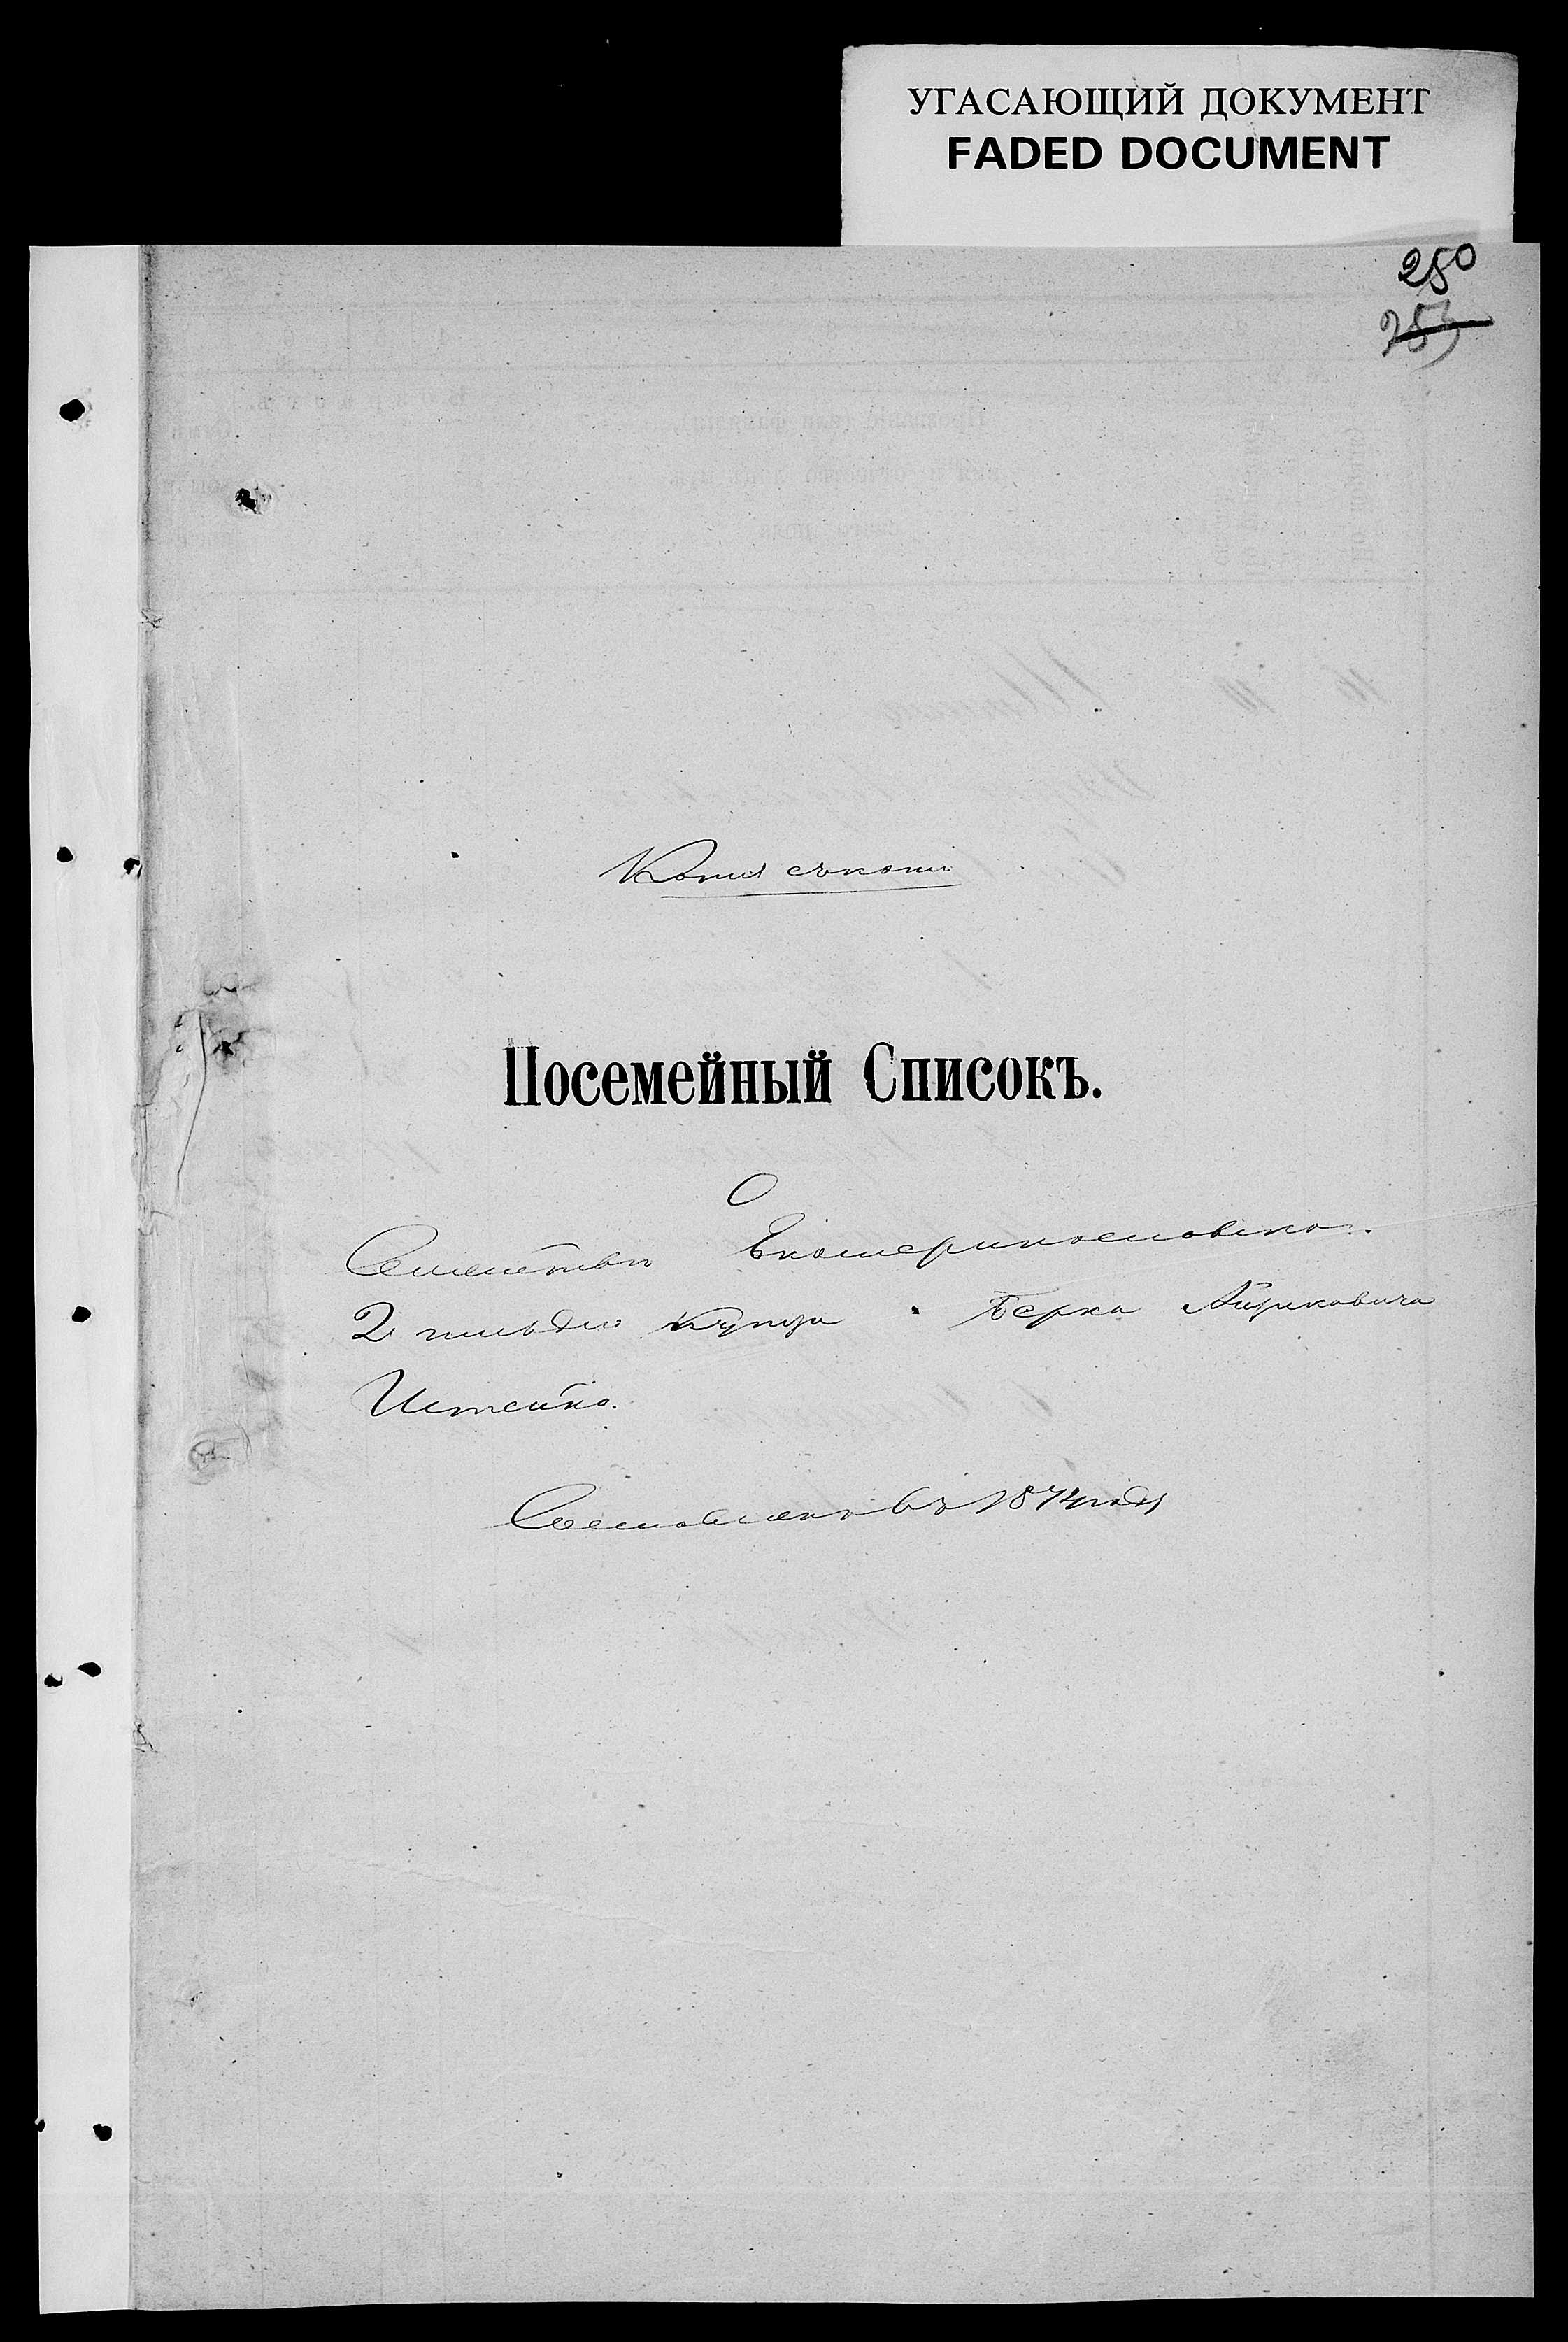 УГАСАЮЩИЙ ДОКУМЕНТ
FADED DOCUMENT
250
253
Копия съ копіи
Посемейный Списокъ.
О
Семействѣ Екатеринославско..
2 гильдіи Купца Берка Айзиковича
Штейна.
Составленъ въ 1874 году